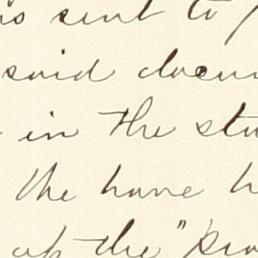 is sent to
said docum
in the stu
the have h
up the "pro